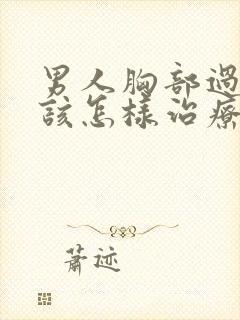 男人胸部過
該怎樣治療
蕭迹